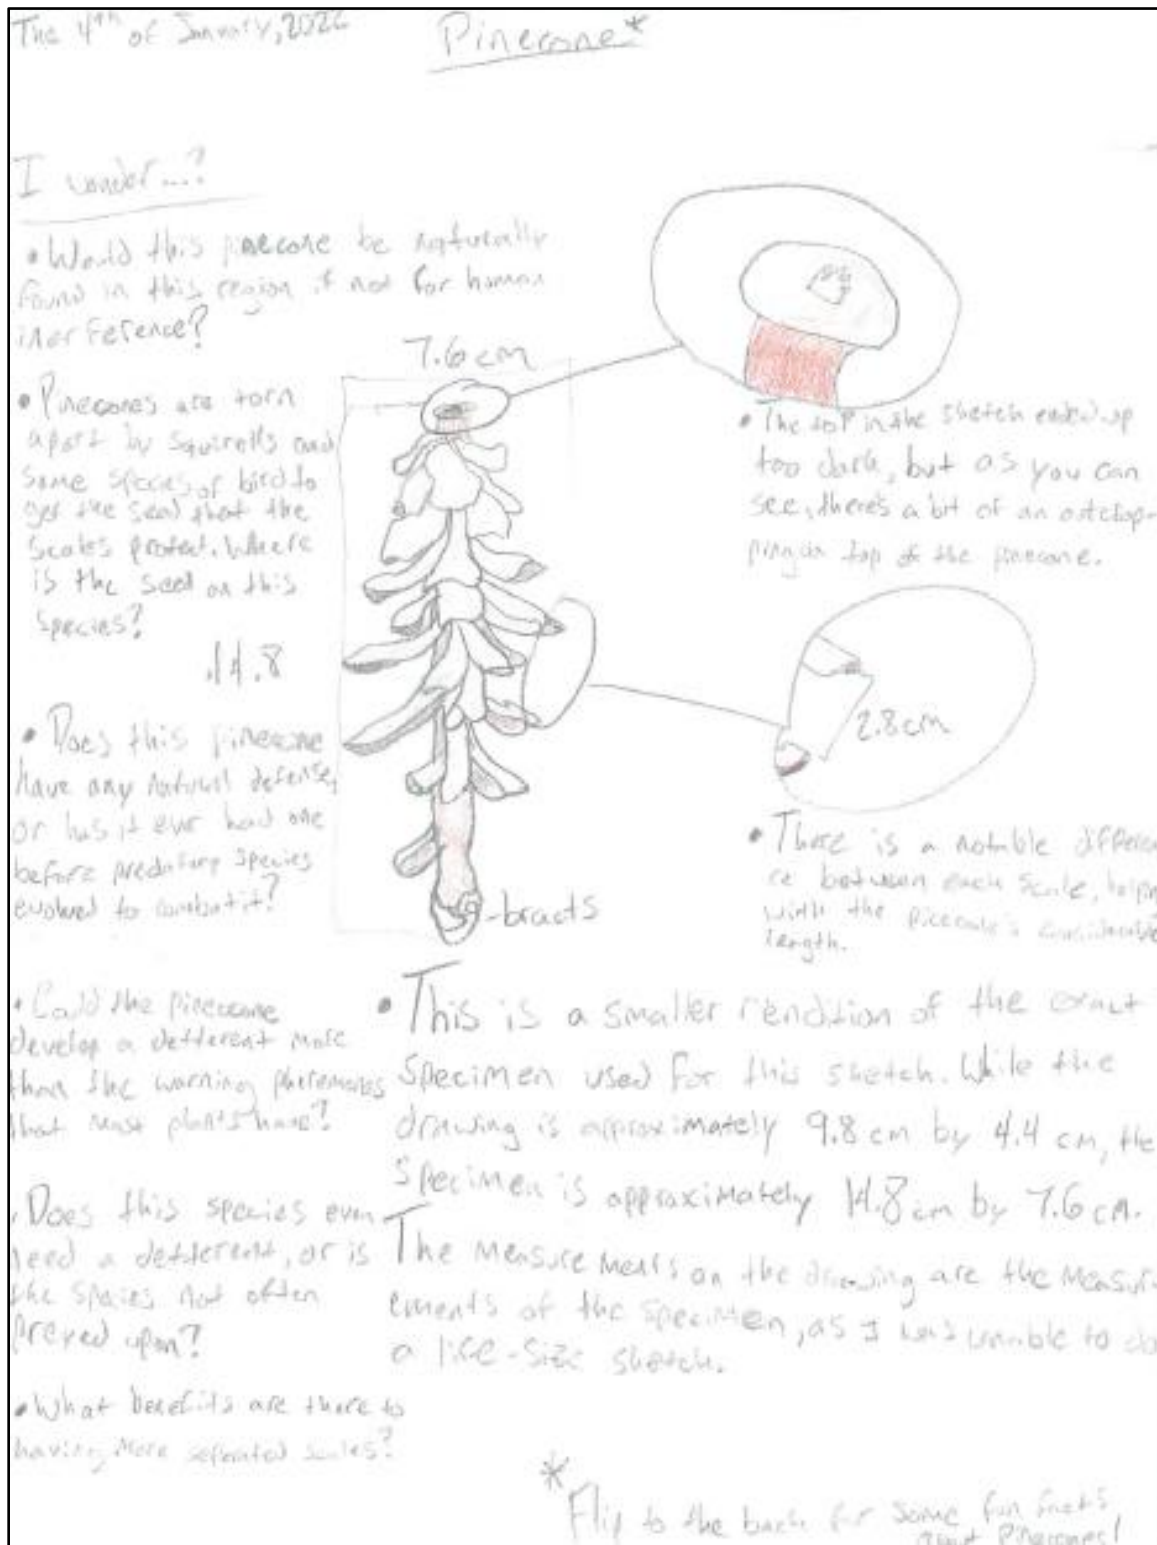 The 4th of January, 2022
Pinecone*
I wonder...?
• Would this pinecone be naturally
found in this region if not for human
interference?
7.6 cm
• Pinecones are torn
apart by squirrells and
some species of bird to
get the seed that the
scales protect. Where
is the seed on this
species?
14.8
• Does this pinecone
have any natural defense,
or has it ever had one
before predatory species
evolved to combat it?
• Could the pinecone
develop a detterent more
than the warning pheremones
that most plants have?
• Does this species even
need a detterent, or is
the species not often
preyed upon?
• What benefits are there to
having more seperated scales?
• The top in the sketch ended up
too dark, but as you can
see, there's a bit of an
ping on top of the pinecone.
2.8 cm
• There is a notable differen
ce between each scale,
with the pinecone's considerable
length.
-bracts
• This is a smaller rendition of the exact
specimen used for this sketch. While the
drawing is approximately 9.8 cm by 4.4 cm, the
specimen is approximately 14.8 cm by 7.6 cm.
The measurements on the drawing are the measur
ements of the specimen, as I was unable to do
a life-size sketch.
* Flip to the back for some fun facts
about pinecones!